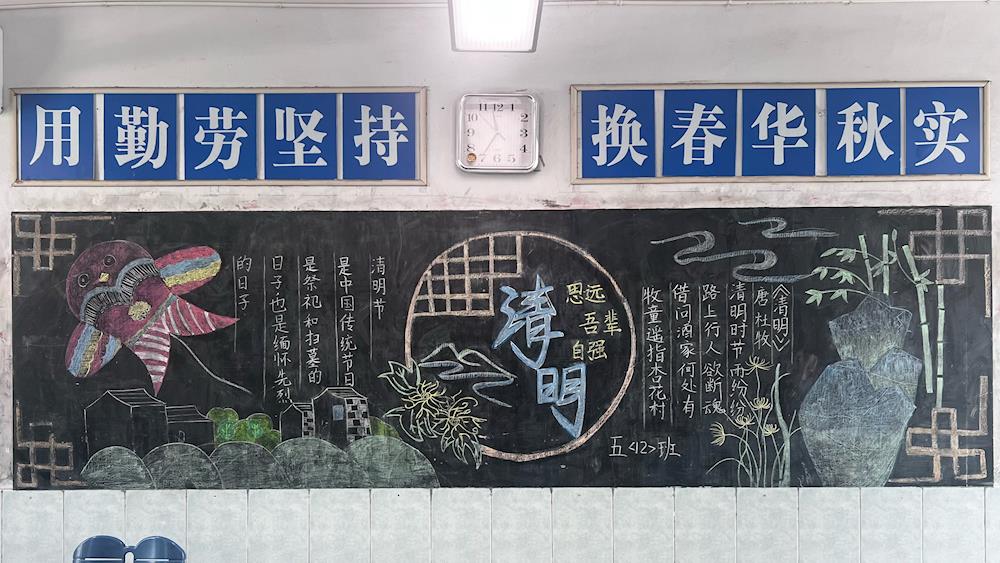 用勤劳坚持
换春华秋实
11 12 1
10 2
9 3
8 4
7 6 5
清明节
是中国传统节日
是祭祀和扫墓的
日子也是缅怀先烈
的日子
清明
思远
吾辈
自强
《清明》
唐杜牧
清明时节雨纷纷
路上行人欲断魂
借问酒家何处有
牧童遥指杏花村
五<12>班